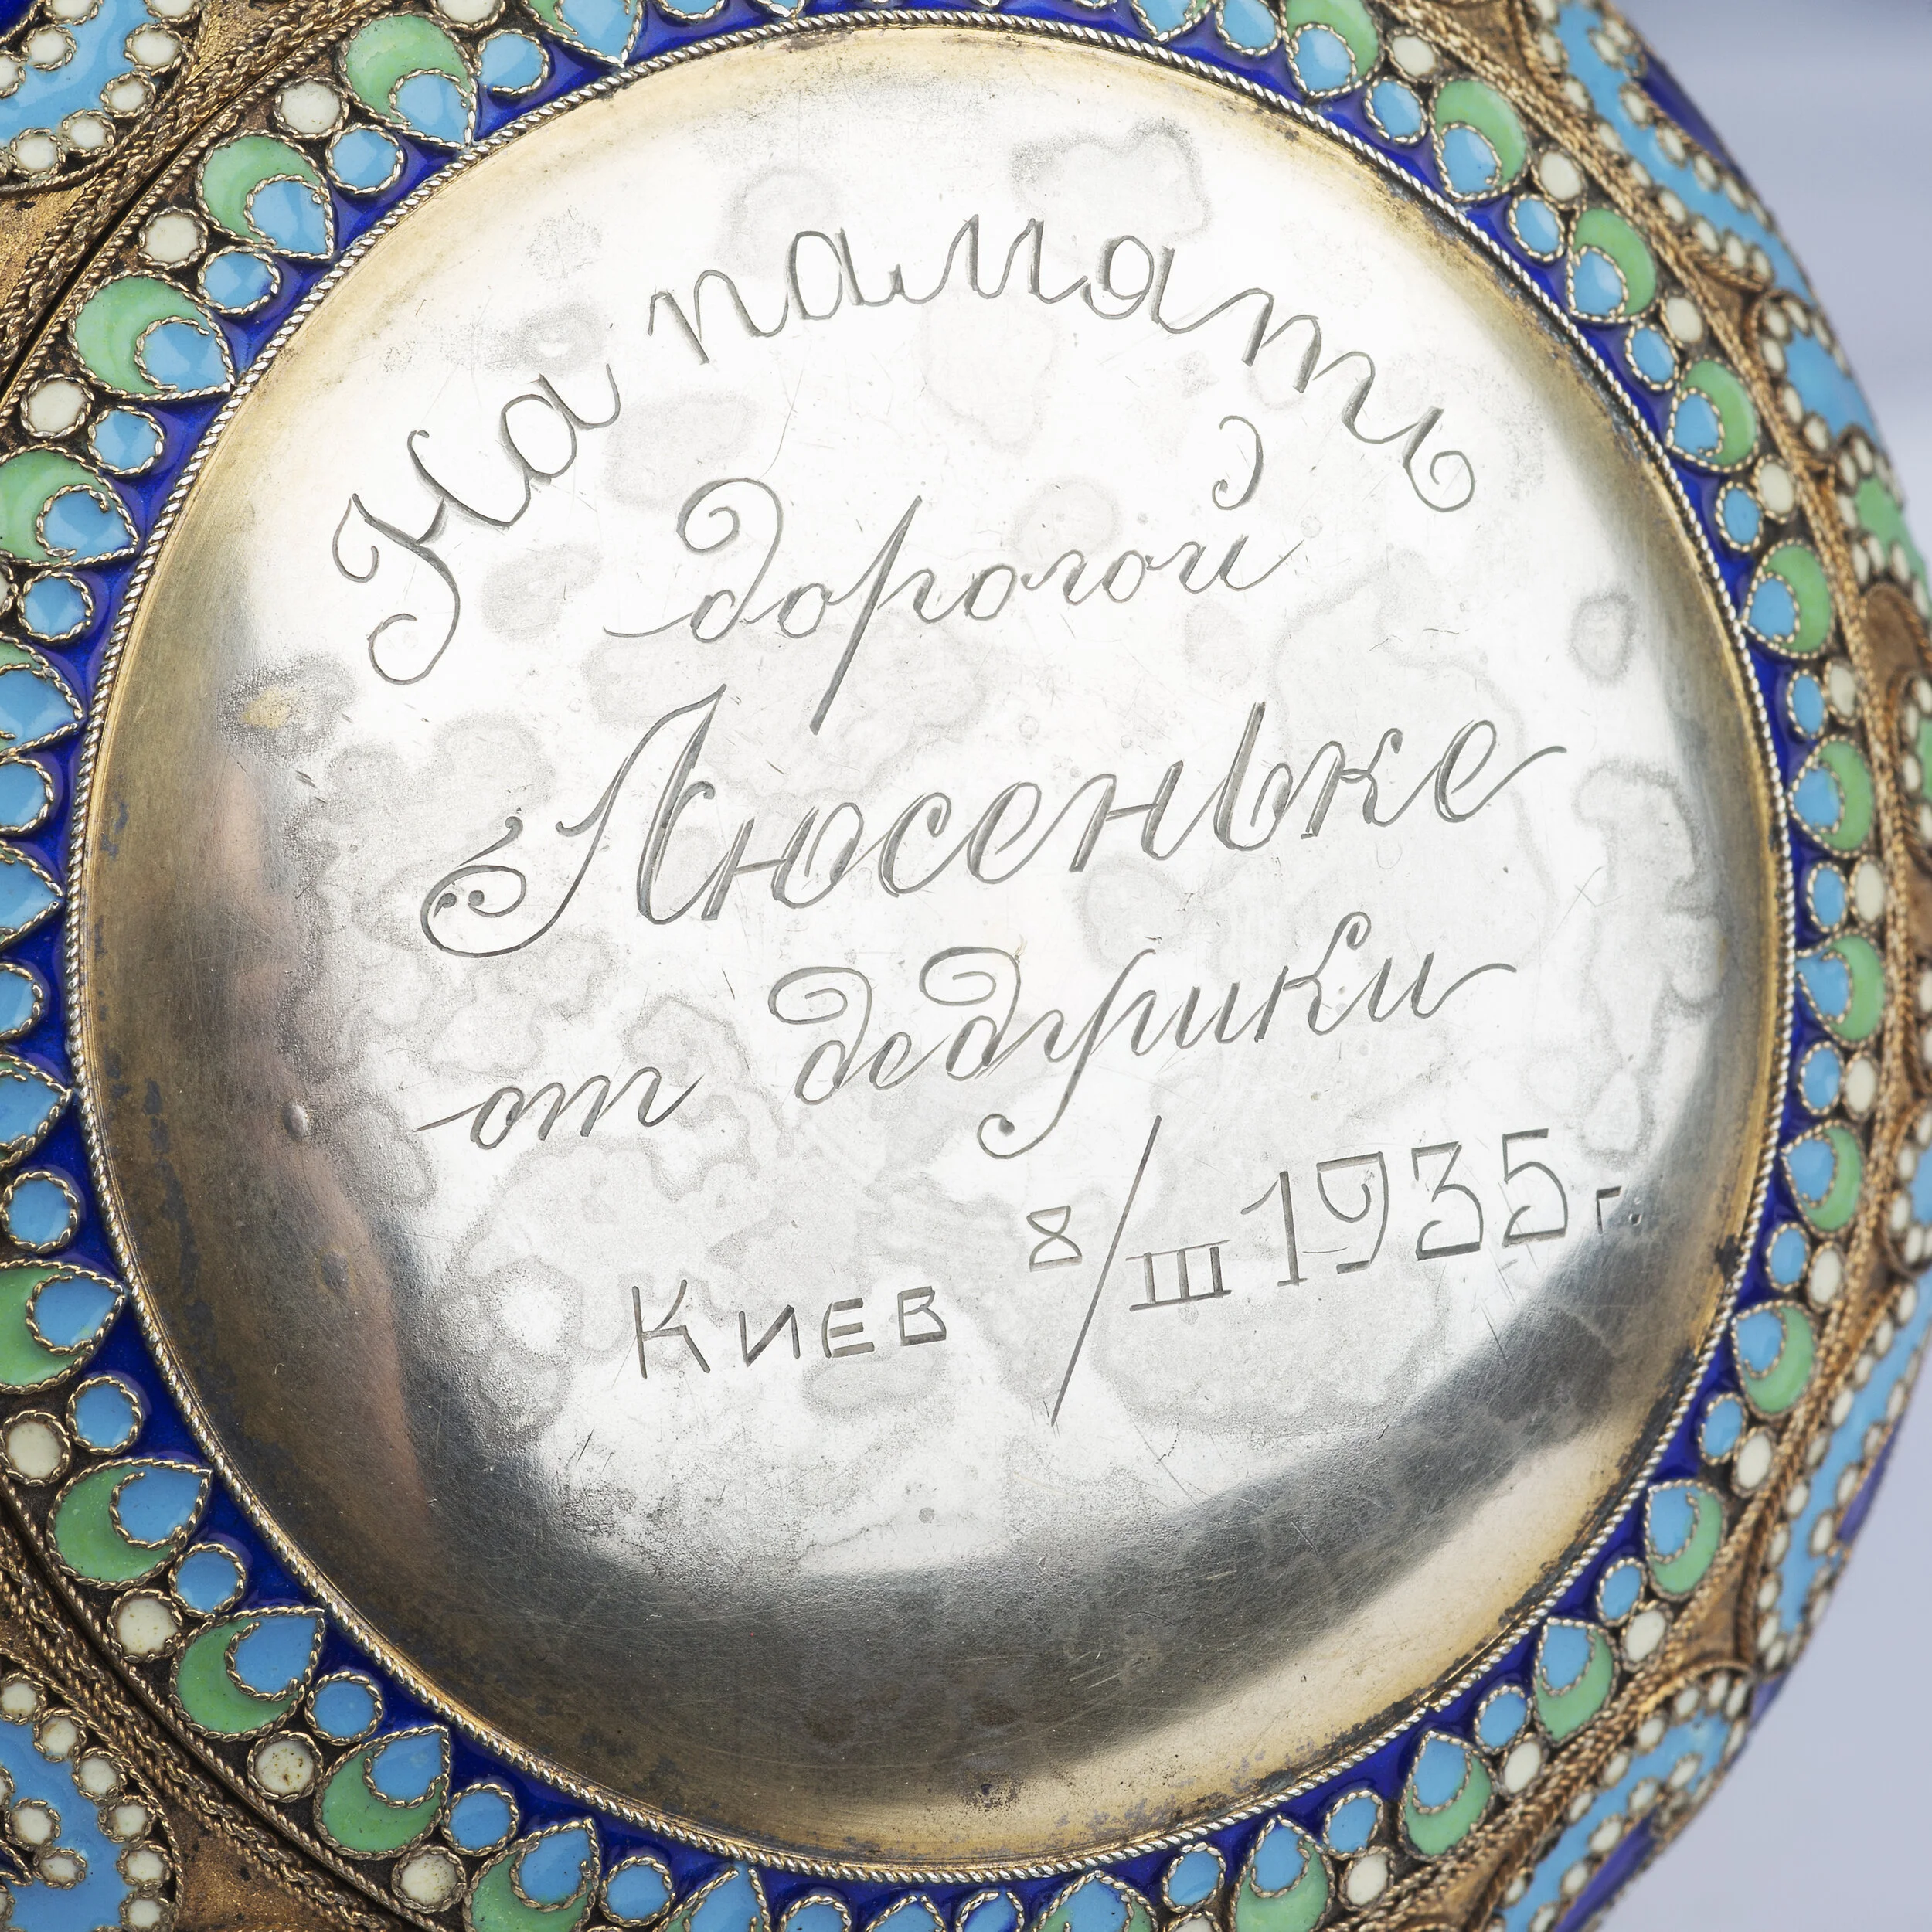 На память
дорогой
Люсеньке
от дедушки
Киев 8/III 1935 г.